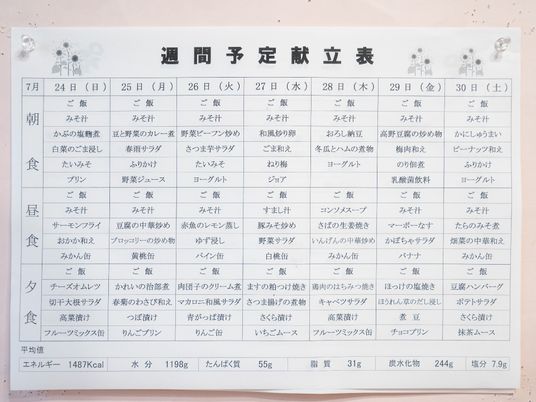 週間予定献立表
7月 24日（日） 25日（月） 26日（火） 27日（水） 28日（木） 29日（金） 30日（土）
朝食
ご飯 ご飯 ご飯 ご飯 ご飯 ご飯 ご飯
みそ汁 みそ汁 みそ汁 みそ汁 みそ汁 みそ汁 みそ汁
かぶの塩麹煮 豆と野菜のカレー煮 野菜ビーフン炒め 和風炒り卵 おろし納豆 高野豆腐の炒め物 かにしゅうまい
白菜のごま浸し 春雨サラダ さつま芋サラダ ごま和え 冬瓜とハムの煮物 梅肉和え ピーナッツ和え
たいみそ ふりかけ たいみそ ねり梅 ヨーグルト のり佃煮 ふりかけ
プリン 野菜ジュース ヨーグルト ジョア 乳酸菌飲料 ヨーグルト
昼食
ご飯 ご飯 ご飯 ご飯 ご飯 ご飯 ご飯
みそ汁 みそ汁 みそ汁 すまし汁 コンソメスープ みそ汁 みそ汁
サーモンフライ 豆腐の中華炒め 赤魚のレモン蒸し 豚みそ炒め さばの生姜焼き マーボーなす たらのみそ煮
おかか和え ブロッコリーの炒め物 ゆず浸し 野菜サラダ いんげんの中華炒め かぼちゃサラダ 畑菜の中華和え
みかん缶 黄桃缶 パイン缶 白桃缶 みかん缶 バナナ みかん缶
夕食
ご飯 ご飯 ご飯 ご飯 ご飯 ご飯 ご飯
チーズオムレツ かれいの治部煮 肉団子のクリーム煮 ますの粕つけ焼き 鶏肉のはちみつ焼き ほっけの塩焼き 豆腐ハンバーグ
切干大根サラダ 春菊のわさび和え マカロニ和風サラダ さつま揚げの煮物 キャベツサラダ ほうれん草のだし浸し ポテトサラダ
高菜漬け つぼ漬け 青がっぱ漬け さくら漬け 高菜漬け 煮豆 さくら漬け
フルーツミックス缶 りんごプリン りんご缶 いちごムース フルーツミックス缶 チョコプリン 抹茶ムース
平均値
エネルギー 1487Kcal 水分 1198g たんぱく質 55g 脂質 31g 炭水化物 244g 塩分 7.9g